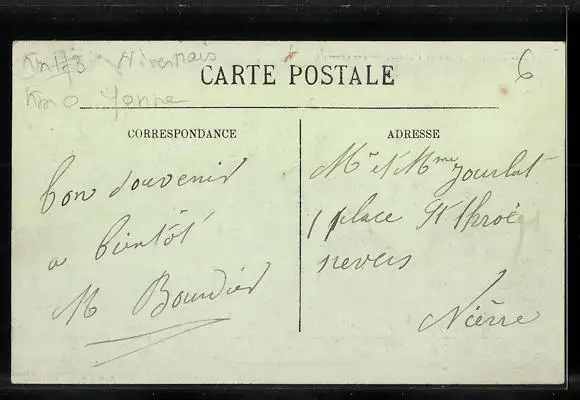 Km 173 Nivernais
Km 0 Yonne
6
CARTE POSTALE
CORRESPONDANCE
ADRESSE
bon souvenir
a bientôt
M Bourdier
Mr et Mme Jourlat
11 place St
nevers
Nièvre